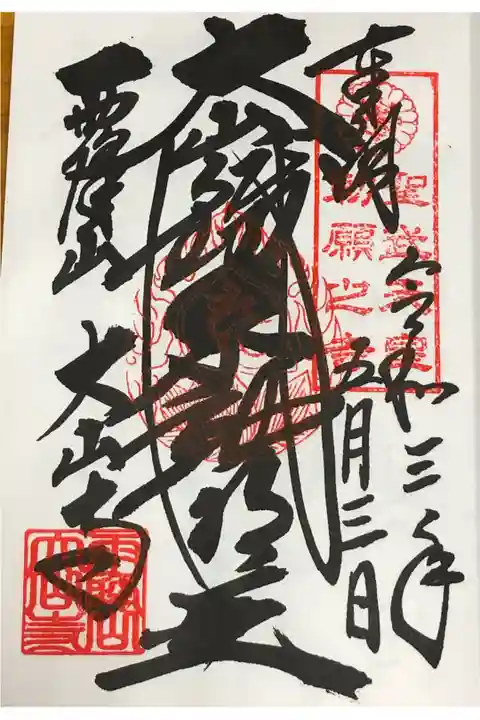 奉拝
聖武天皇
勅願之寺
令和三年
五月三日
不動明王
雨降山 大山寺
雨降山
大山寺